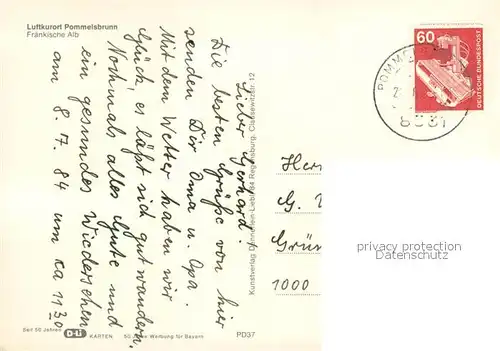 Luftkurort Pommelsbrunn
Fränkische Alb
Lieber Gerhard!
Die besten Grüße von hier
senden Dir Oma u. Opa.
Mit dem Wetter haben wir
Glück, es läßt sich gut wandern.
Nochmals alles Gute und
ein gesundes Wiedersehen
am 8. 7. 84 um ca 11 30
Kunstverlag
Regensburg,
12
Seit 50 Jahren
KARTEN
50 Jahre Werbung für Bayern
PD37
60
DEUTSCHE BUNDESPOST
POMM
Herr
G.
Grün
1000
privacy protection
ansichtskarten-lexikon